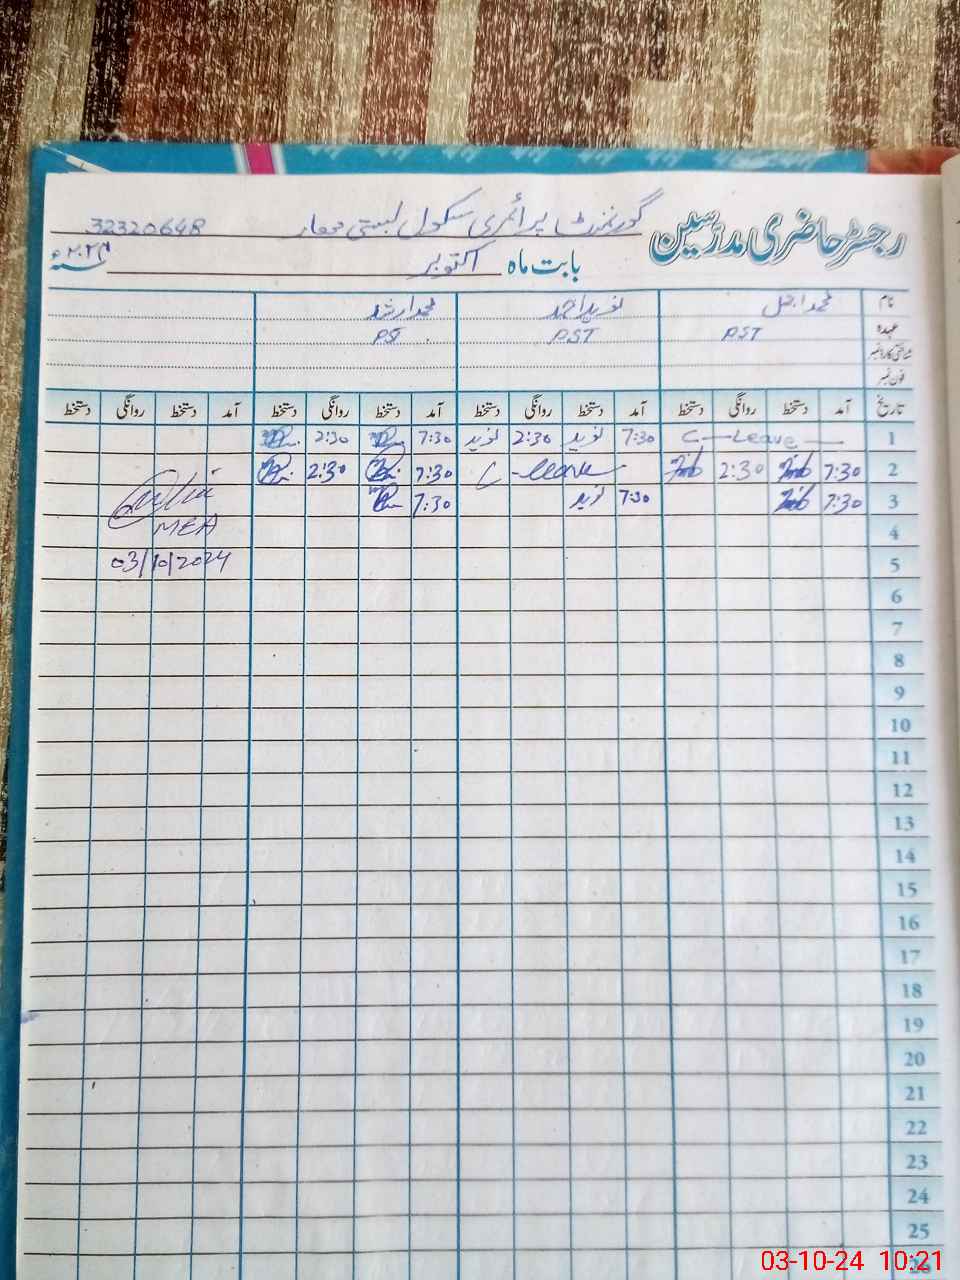 رجسٹر حاضری مدرسین گورنمنٹ پرائمری سکول بستی 32320648
بابت ماہ اکتوبر سنہ ۲۰۲۴ء
نام محمد اجمل نوید احمد محمد ارشد
عہدہ PST PST PST
شناختی کارڈ نمبر
فون نمبر
تاریخ آمد دستخط روانگی دستخط آمد دستخط روانگی دستخط آمد دستخط روانگی دستخط آمد دستخط روانگی دستخط
1 C-Leave 7:30 نوید 2:30 نوید 7:30 2:30
2 7:30 2:30 C-leave 7:30 2:30
3 7:30 7:30 نوید 7:30
4 MEA
5 03/10/2024
6
7
8
9
10
11
12
13
14
15
16
17
18
19
20
21
22
23
24
25
26
03-10-24 10:21